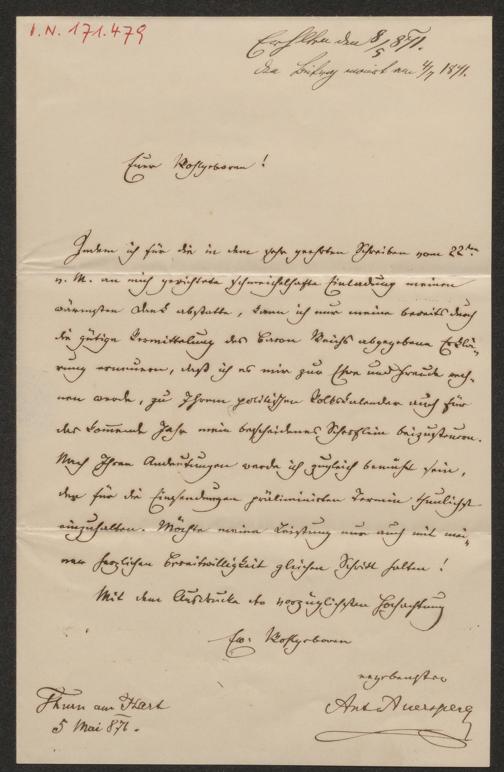 I. N. 171.479
Erhalten den 8/5 871.
den Beitrag am 4/7 1871.
Euer Wohlgeboren!
Indem ich für die in dem sehr geehrten Schreiben vom 22ten
v. M. an mich gerichtete schmeichelhafte Einladung meinen
wärmsten Dank abstatte, kann ich nur meine bereits durch
die gütige Vermittelung des Baron Weichs abgegebene Erklä-
rung erneuern, daß ich es mir zur Ehre und Freude rech-
nen werde, zu Ihrem politischen Volkskalender auch für
das kommende Jahr mein bescheidenes Scherflein beizusteuern.
Nach Ihren Andeutungen werde ich zugleich bemüht sein,
den für die Einsendungen präliminirten Termin thunlichst
einzuhalten. Möchte meine Leistung nur auch mit mei-
ner herzlichen Bereitwilligkeit gleichen Schritt halten!
Mit dem Ausdrucke der vorzüglichsten Hochachtung
Ew: Wohlgeboren
ergebenster
Ant Auersperg
Thurn am Hart
5 Mai 871.